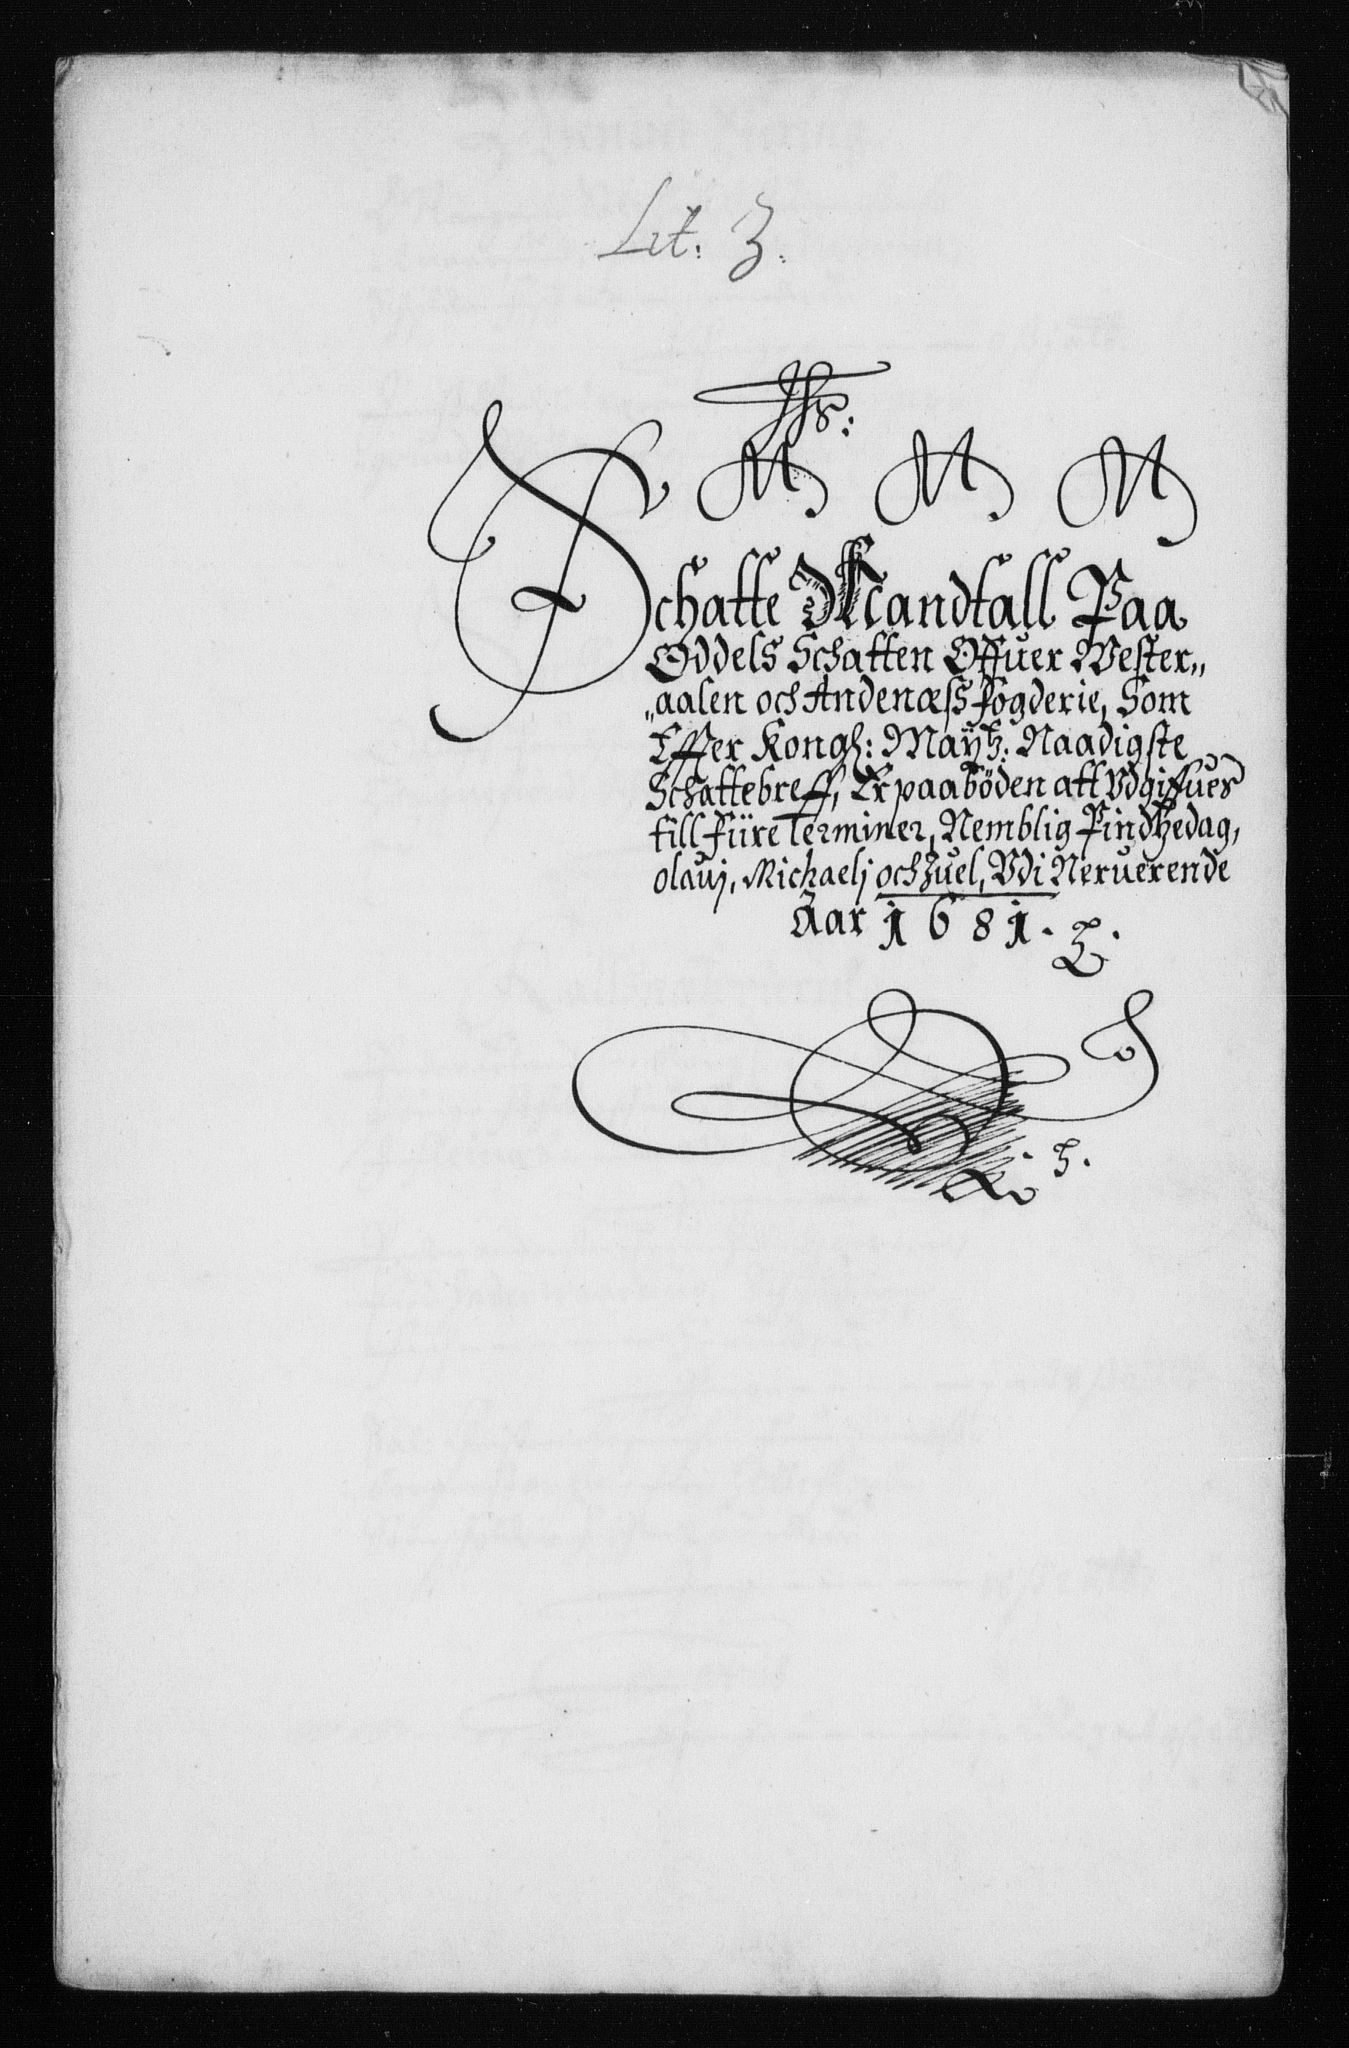 Lit: 3.
Jhs:
M M M
Schatte Mandtall Paa
Oddels Schatten Offuer Wester„
„aalen och Andenæss fogderie, Som
Effter Kongl: Maÿtz: Naadigste
Schattebreff, Er paaböden att Vdgiffues
till fiire Terminer, Nemblig Pindtzedag,
olauj, Michaelj och Juel, Vdi Neruerende
Aar 1681.